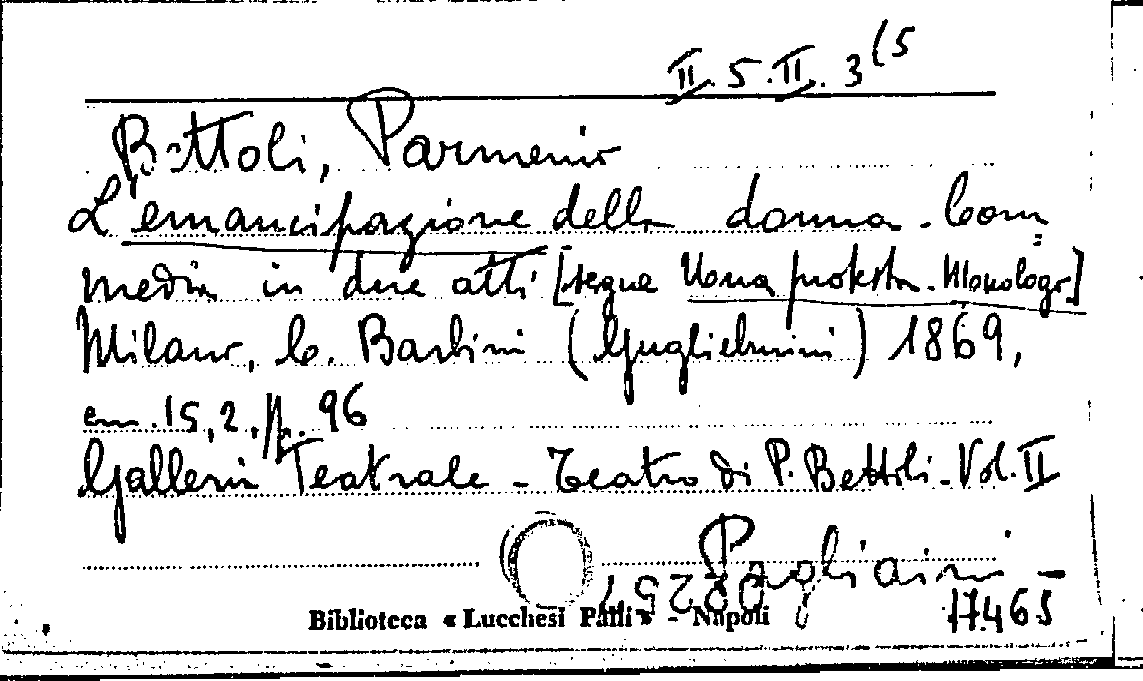 II. 5. II. 3(5
Bettoli, Parmenio
L'emancipazione della donna. Com=
media in due atti [segue Una protesta. Monologo]
Milano, C. Barbini (Guglielmini) 1869,
cm. 15,2, pp. 96
Galleria Teatrale - Teatro di P. Bettoli - Vol. II
Pagliaini -
02257
17465
Biblioteca « Lucchesi Palli » - Napoli